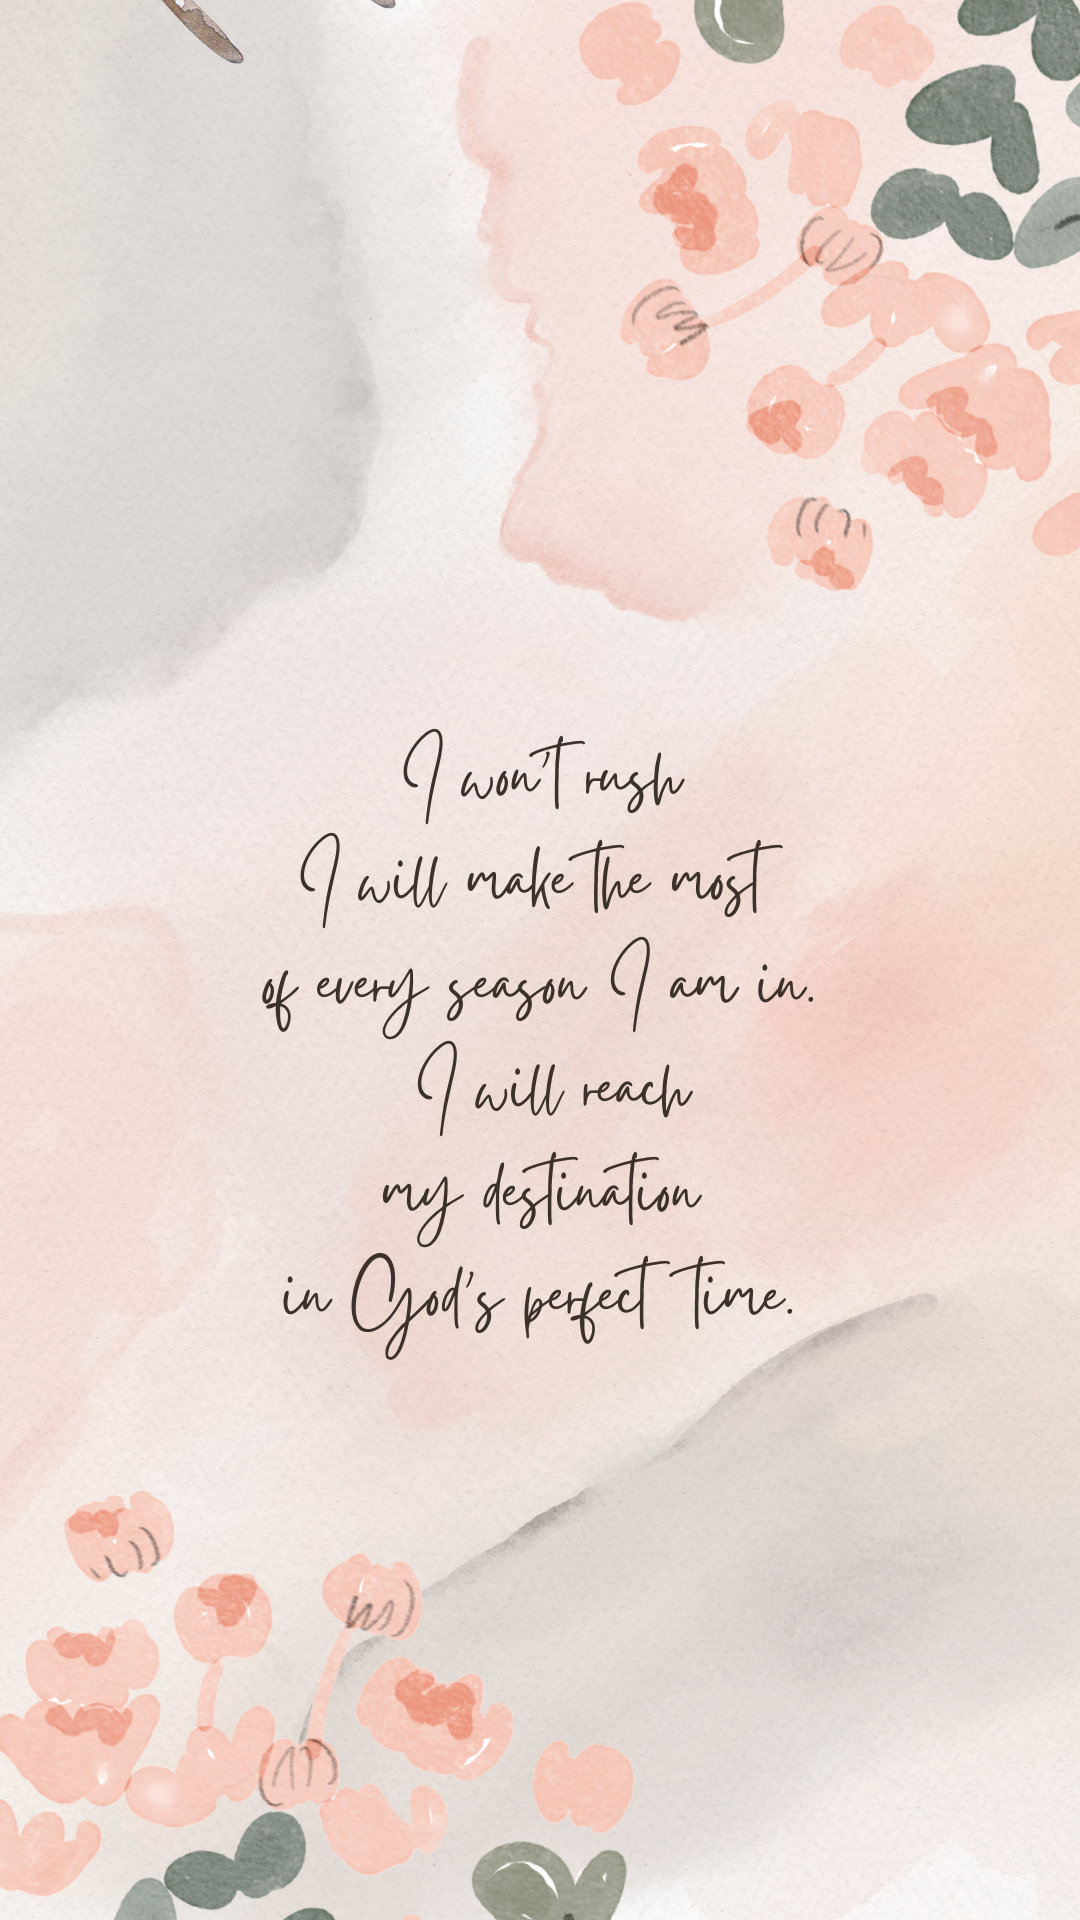 I won't rush
I will make the most
of every season I am in.
I will reach
my destination
in God's perfect time.